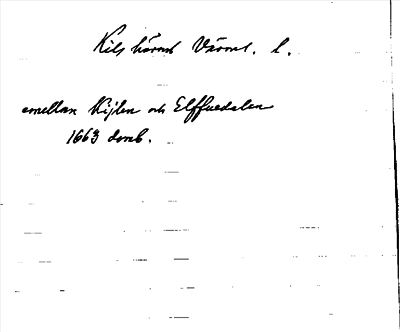 Kils härad Värml. l.
emellan Kijlen och Elffuedalen
1663 domb.